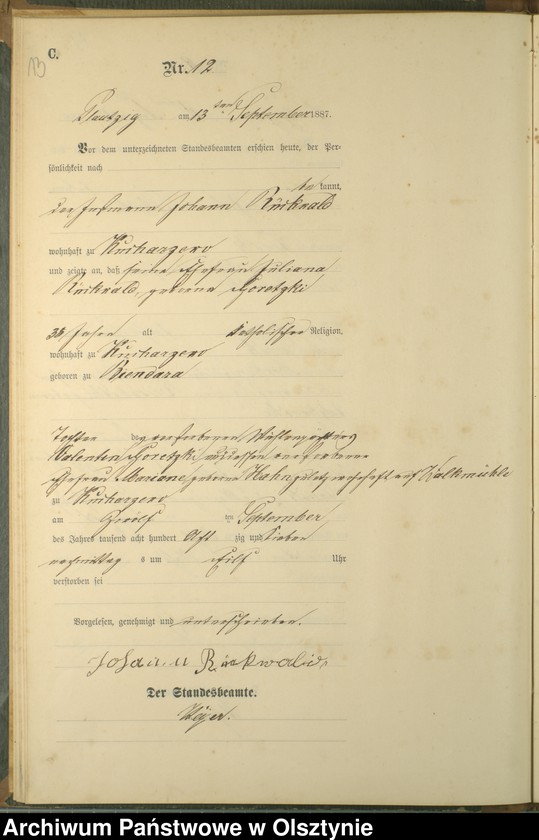 C.
13
Nr. 12
am 13ten September 1887.
Vor dem unterzeichneten Standesbeamten erschien heute, der Per-
sönlichkeit nach
bekannt,
der Johann Rückwald
wohnhaft zu Kucharzewo
und zeigte an, daß seine Ehefrau Juliana
Rückwald, geborene Goretzki
38 Jahre alt katholischer Religion,
wohnhaft zu Kucharzewo
geboren zu
Tochter des verstorbenen
Valentin Goretzki und dessen
Ehefrau Marianne geborene Hahn zuletzt wohnhaft auf Kalkmühle
zu Kucharzewo
am zwölf ten September
des Jahres tausend acht hundert acht zig und sieben
nachmittag s um Eilf Uhr
verstorben sei
Vorgelesen, genehmigt und unterschrieben.
Johann Rückwald
Der Standesbeamte.
Archiwum Państwowe w Olsztynie